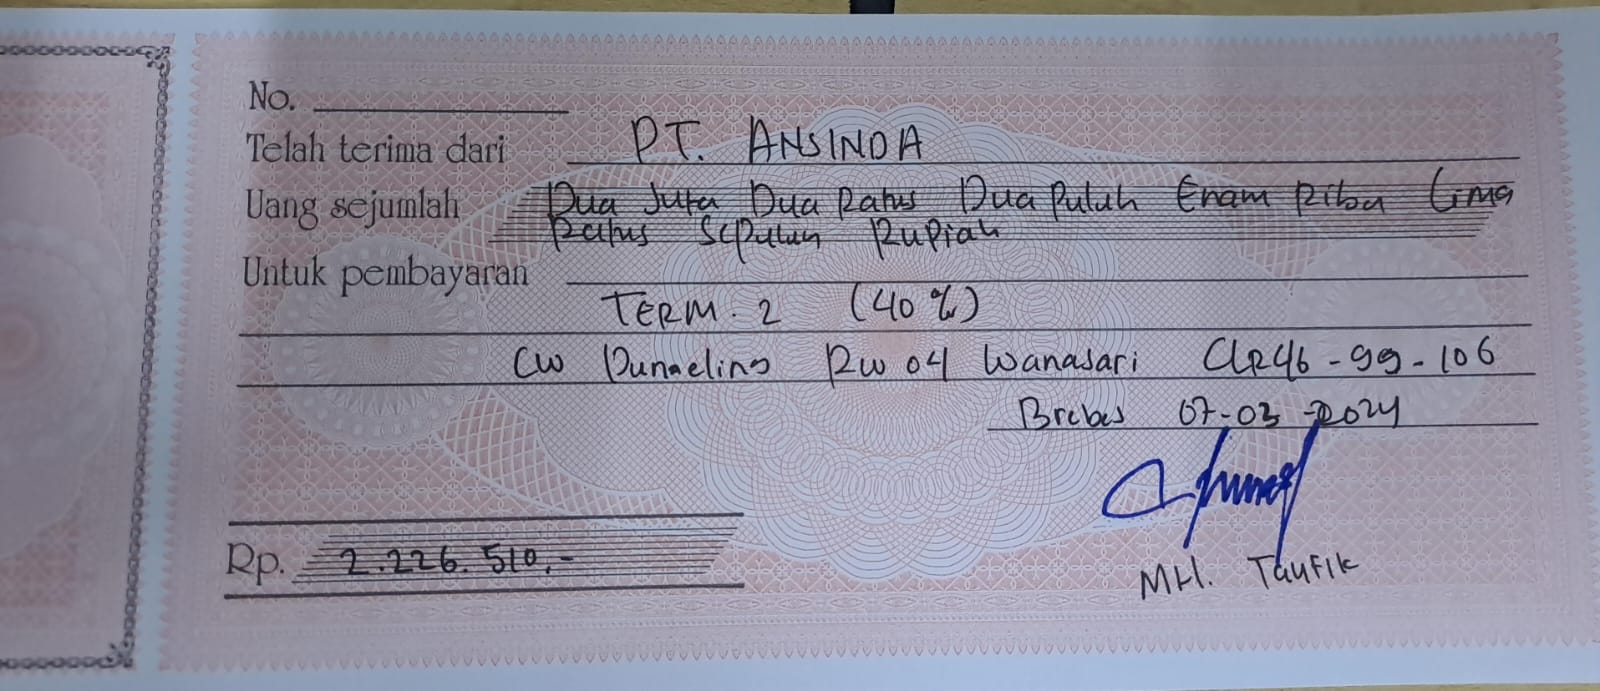 No.
Telah terima dari PT. ANSINDA
Uang sejumlah Dua Juta Dua Ratus Dua Puluh Enam Ribu Lima
Ratus Sepuluh Rupiah
Untuk pembayaran
TERM. 2 (40%)
CW RW 04 Wanasari
Brebes 07-03-2024
Rp. 2.226.510,-
MH. Taufik